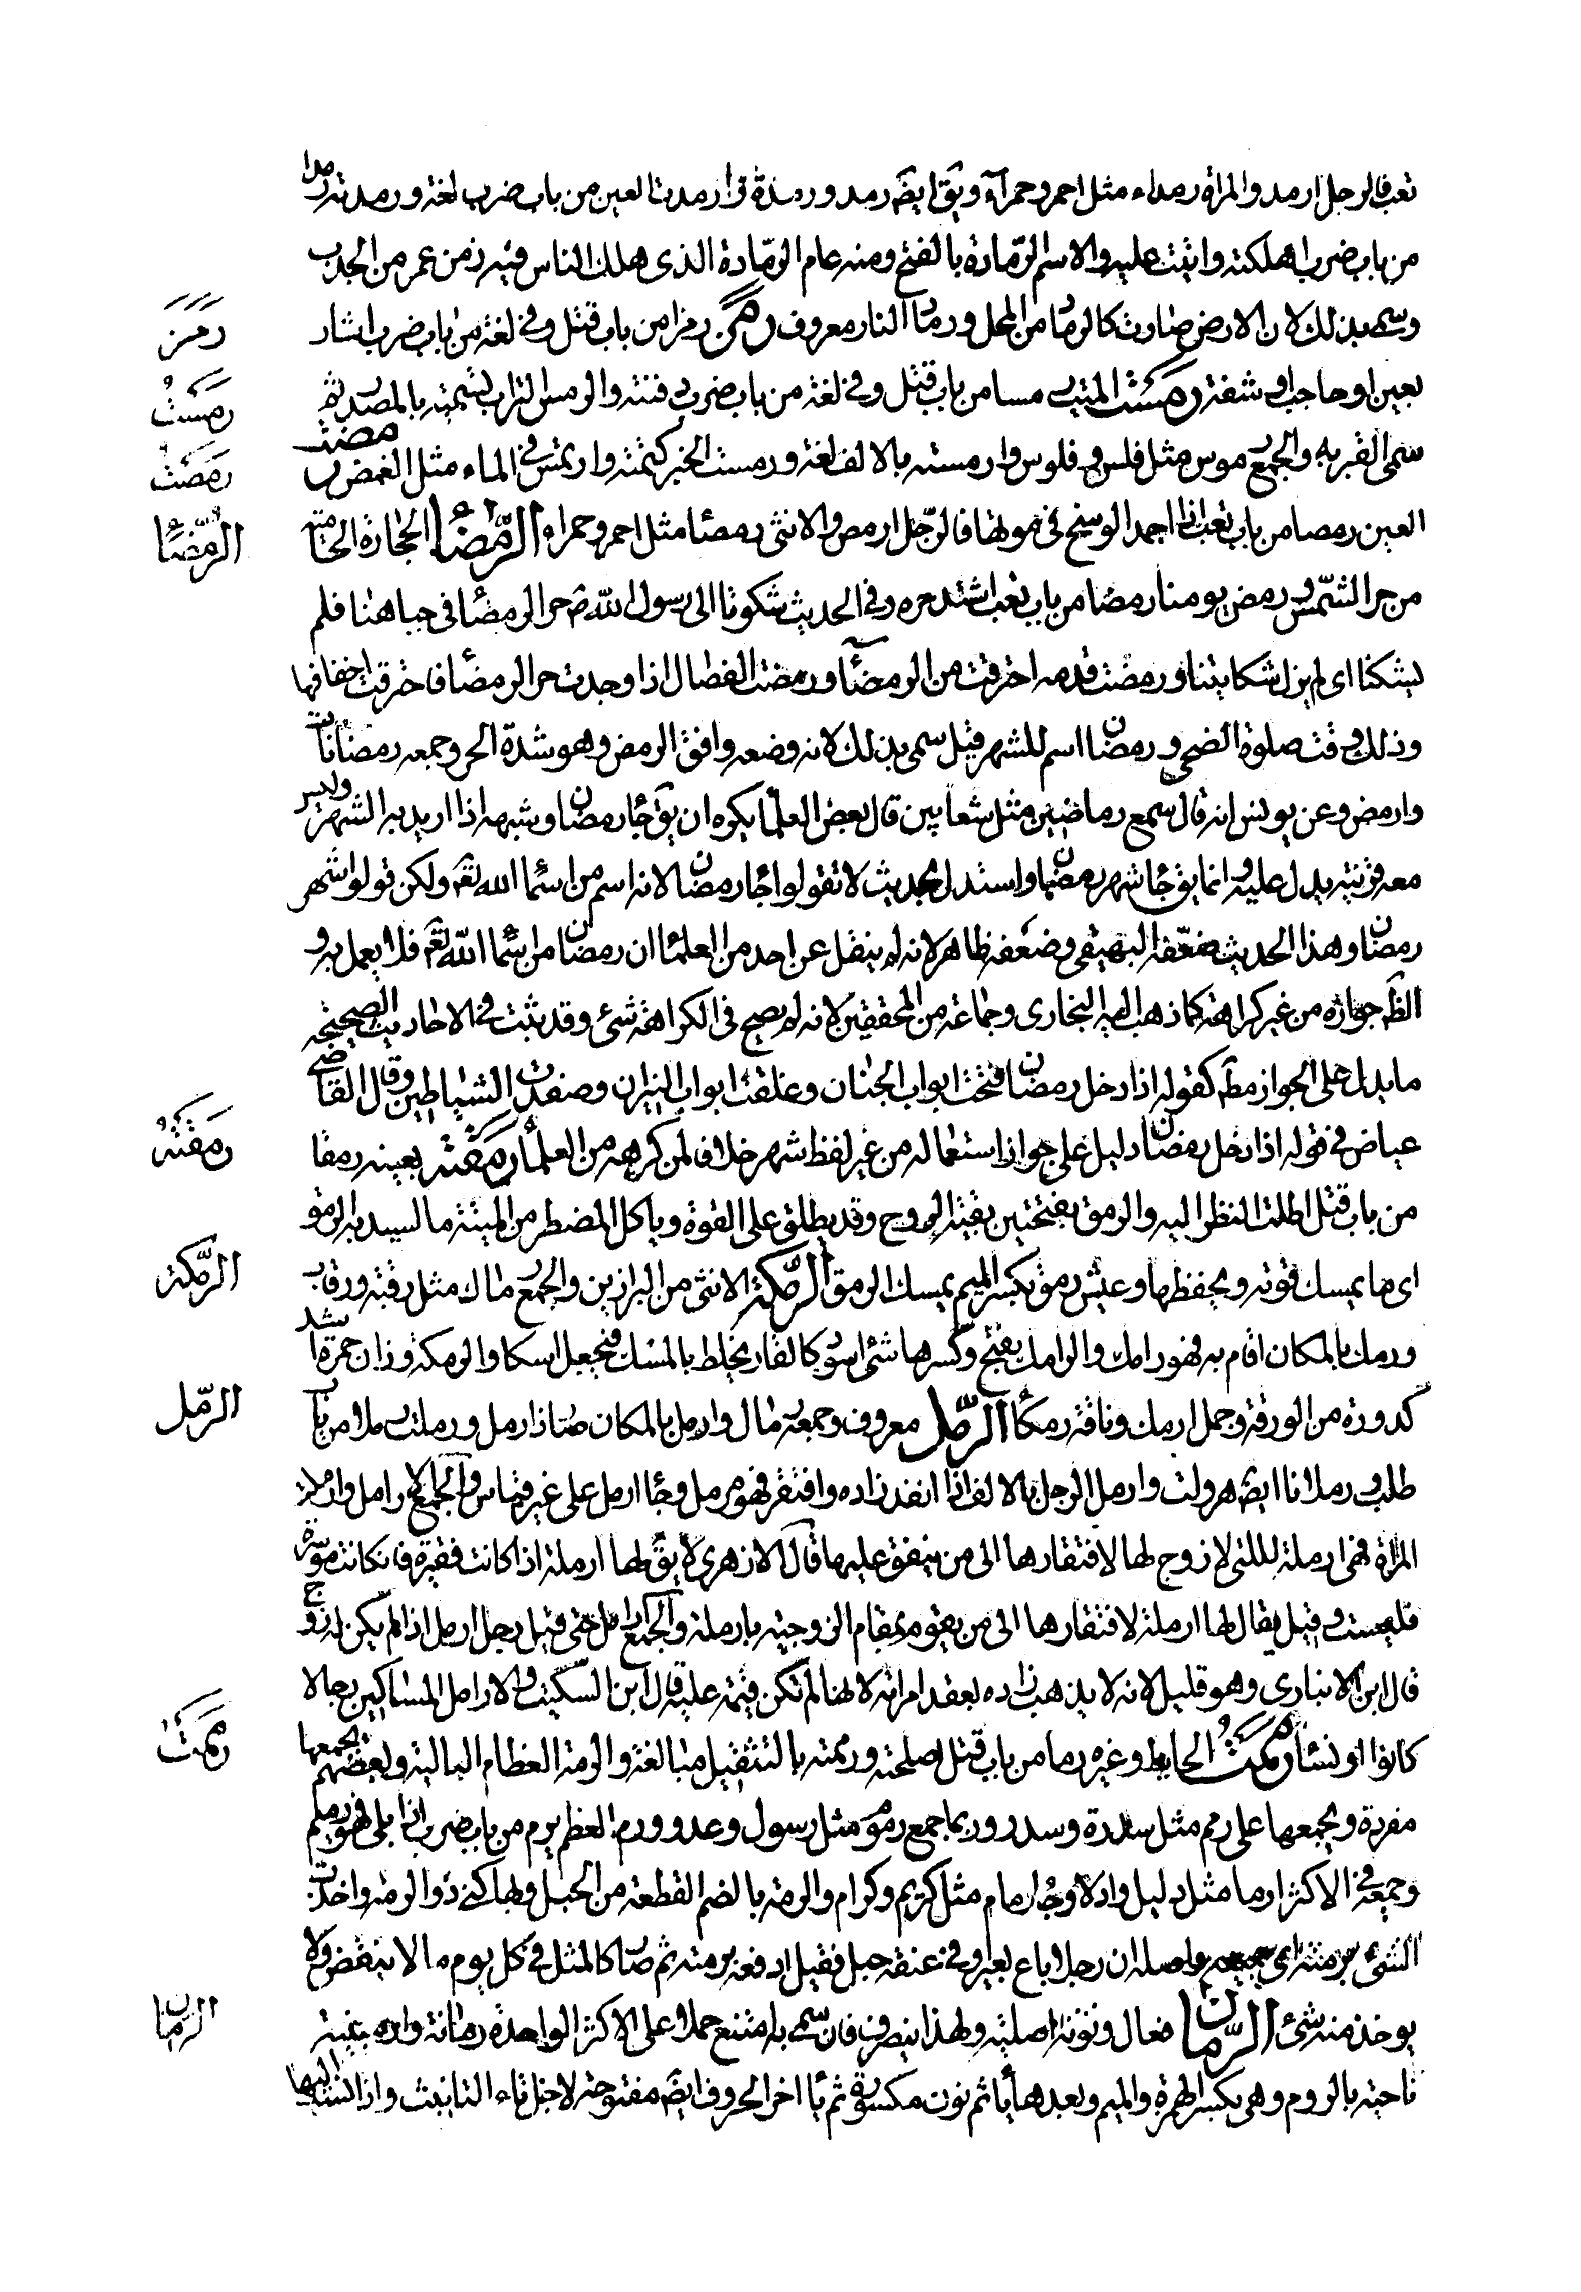 تعب فالرجل ارمد والمراة رمداء مثل احمر وحمراء ويق ايضه رمد ورمدة وارمدت العين من باب ضرب لغة ورمدته رمدا
من باب ضرب اهلكته واتيت عليه والاسم الرّمادة بالفتح ومنه عام الرّمادة الذى هلك الناس فيه زمن عمر من الجدب
وسمى بذلك لان الارض صارت كالرماد من المحل ورماد النار معروف رمز رمزا من باب قتل وفى لغة من باب ضرب اشار
بعين او حاجب او شفة رمست الميت رمسا من باب قتل وفى لغة من باب ضرب دفنته والرمس التراب تسمية بالمصدر ثم
سمى القبر به والجمع رموس مثل فلس وفلوس وارمسته بالالف لغة ورمست الخبر كتمته وارتمس فى الماء مثل انغمض رمصت
العين رمصا من باب تعب اذا اجمد الوسخ فى موقها فالرّجل ارمص والانثى رمصا مثل احمر وحمراء الرّمضا الحجارة الحامية
من حر الشّمس ورمض يومنا رمضا من باب تعب اشتد حره وفى الحديث شكونا الى رسول الله ص حر الرمضا فى جباهنا فلم
يشكنا اى لم يزل شكايتنا ورمضت قدمه احترقت من الرمضا ورمضت الفصال اذا وجدت حر الرمضا فاحترقت اخفافها
وذلك وقت صلوة الضحى ورمضان اسم للشهر قيل سمى بذلك لانه وضعه وافق الرمض وهو شدة الحر وجمعه رمضانات
وارمض وعن يونس انه قال سمع رماضين مثل شعابين قال بعض العلما يكره ان يق جا رمضان وشبهه اذا اريد به الشهر وليس
معه قرينة يدل عليه وانما يق جا شهر رمضان واستدل بحديث لا تقولوا جا رمضان لانه اسم من اسما الله تعه ولكن قولوا شهر
رمضان وهذا الحديث ضعّفه البيهقى وضعفه ظاهر لانه لم ينقل عن احد من العلما ان رمضان من اسما الله تعه فلا يعمل به و
الظه جوازه من غير كراهة كما ذهب اليه البخارى وجماعة من المحققين لانه لم يصح فى الكراهة شئ وقد ثبت فى الاحاديث الصحيحة
ما يدل على الجواز مطه كقوله اذا دخل رمضان فتحت ابواب الجنان وغلقت ابواب النيران وصفدت الشياطين وقال القاضى
عياض فى قوله اذا دخل رمضان دليل على جواز استعماله من غير لفظ شهر خلاف لمن كرهه من العلما رمقته بعينه رمقا
من باب قتل اطلت النظر اليه والرمق بفتحتين بقية الروح وقد يطلق على القوة وياكل المضطر من الميتة ما يسد به الرمق
اى ما يمسك قوته ويحفظها وعيش رمق بكسر الميم يمسك الرمق الرّمكة الانثى من البراذين والجمع رماك مثل رقبة ورقاب
ورمك بالمكان اقام به فهو رامك والرامك بفتح وكسرها شئ اسود كالقار يخلط بالمسك فيجعل سكا والرمكة وزان حمرة اشد
كدورة من الورقة وجمل ارمك وناقة رمكا الرّمل معروف وجمعه رمال وارمل بالمكان صار ذا رمل ورملت رملا من باب
طلب ورملانا ايضه هرولت وارمل الرجل بالالف اذا انفد زاده وافتقر فهو مرمل وجا ارمل على غير قياس والجمع الارامل وارملت
المراة فهى ارملة للتى لا زوج لها لافتقارها الى من ينفق عليها قال الازهرى لا يق لها ارملة اذا كانت فقيرة فان كانت موسرة
فليست وقيل يقال لها ارملة لافتقارها الى من يقوم بمقام الزوجية بارملة والجمع ارامل حتى قيل رجل ارمل اذا لم يكن له زوج
قال ابن الانبارى وهو قليل لانه لا يذهب زاده بعقد امراته لانها لم تكن قيمة عليه قال ابن السكيت والارامل المساكين رجالا
كانوا او نسا رممت الحايط وغيره رما من باب قتل اصلحته ورممته بالتثقيل مبالغة والرمة العظام البالية وبعضهم يجمعها
مفردة ويجمعها على رمم مثل سدرة وسدر وربما جمع رموم مثل رسول وعدو ورم العظم يرم من باب ضرب اذا بلى فهو رميم
وجمعه فى الاكثر ارما مثل دليل وادلا وجا رمام مثل كريم وكرام والرمة بالضم القطعة من الحبل وبها كنى ذو الرمة واخذت
الشئ برمته اى جميعه واصله ان رجلا باع بعيرا وفى عنقه حبل فقيل ادفعه برمته ثم صار كالمثل فى كل يوم ما لا ينقض ولا
يوخذ منه شئ الرّمان فعال ونونه اصلية ولهذا ينصرف فان سمى به امتنع حملا على الاكثر الواحدة رمانة وارمينية
ناحية بالروم وهى بكسر الهمزة والميم وبعدها يا ثم نون مكسورة ثم يا اخر الحروف ايضه مفتوحة لاجل تاء التانيث واذا نسبت اليها
رمز
رمست
رمصت
الرّمضا
رمقته
الرّمكة
الرّمل
رممت
الرمان